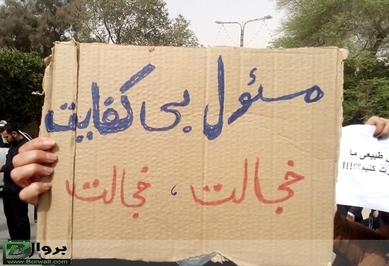 مسئول بی کفایت
خجالت ، خجالت
طبیعی ما
کنید؟؟!!!
بروال
www.Borwall.com